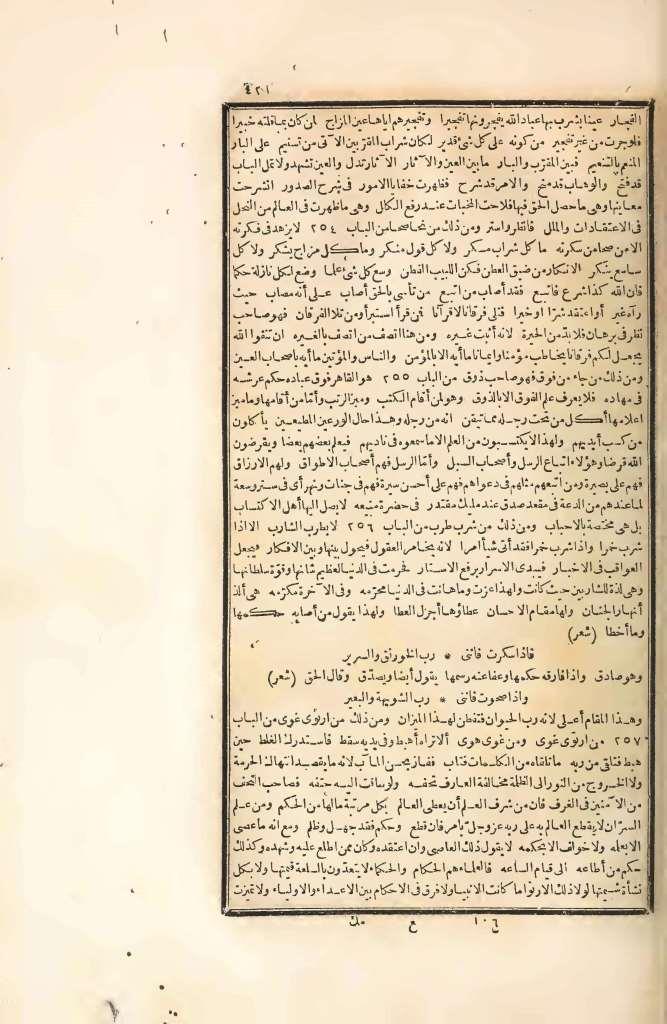 ٤٢١
الفجار عينا يشرب بها عباد الله يفجرونها تفجيرا وتفجيرهم اياها عين المزاج لمن كان بما قلته خبيرا
فلو جرت من غير تفجير من كونه على كل شئ قدير لكان شراب المقرّبين الآتى من تسنيم على البار
المنعم بالتنعيم فبين المقرّب والبار ما بين العين والآثار الآثار تدل والعين تشهد ولا تمل الباب
قد فتح والوهاب قد منح والامر قد شرح فظهرت خفايا الامور فى شرح الصدور انشرحت
معاينها وهى ما حصل الحق فيها فلاحت المخبات عند رفع الكلل وهى ما ظهرت فى العالم من النحل
فى الاعتقادات والملل فانظر واستر ومن ذلك من نحا صحا من الباب ٢٥٤ لا يزهد فى فكرته
الا من صحا من سكرته ما كل شراب مسكر ولا كل قول منكر وما كل مزاج يشكر ولا كل
سامع ينكر الانكار من ضيق العطن فكن اللبيب الفطن وسع كل شئ علما وضع لكل نازلة حكما
فان الله كذا شرع فاتبع فقد أصاب من اتبع من تأسى بالحق أصاب على أنه مصاب حيث
رآه غير أو اعتقد شرّا أو خيرا فتلى فرقانا لا قرآنا فمن قرأ استبرأ ومن تلا الفرقان فهو صاحب
نظر فى برهان فلا بدّ من الحيرة لانه أثبت غيره ومن هنا اتصف من اتصف بالغيره ان تتقوا الله
يجعل لكم فرقانا يخاطب مؤمنا وايمانا ما أيه الا بالمؤمن والناس والمؤتين ما أيه بأصحاب العين
ومن ذلك من جاء من فوق فهو صاحب ذوق من الباب ٢٥٥ هو القاهر فوق عباده حكم عرشه
فى مهاده فلا يعرف علم الفوق الا بالذوق ولو لم أقام الكتب وميز الرتب وأمّا من أقامها وما ميز
اعلامها أكل من تحت رجله مما تيقن انه من رجله وهذا حال الورعين المطيعين يأكلون
من كسب أيديهم ولهذا لا يكتسبون من العلم الا ما سمعوه فى ناديهم فيعلم بعضهم بعضا ويقرضون
الله قرضا وهؤلاء اتباع الرسل وأصحاب السبل وأمّا الرسل فهم أصحاب الاطواق ولهم الارزاق
فهم على بصيرة ومن اتبعهم مثلهم فى دعواهم فهم على أحسن سيرة فهم فى جنات ونهر أى فى ستر وسعة
لما عندهم من الدعة فى مقعد صدق عند مليك مقتدر فى حضرة منيعه لا يصل اليها أهل الاكتساب
بل هى مختصة بالاحباب ومن ذلك من شرب طرب من الباب ٢٥٦ لا يطرب الشارب الا اذا
شرب خمرا واذا شرب خمرا فقد أتى شيأ امرا لانه يخامر العقول فيحول بينها وبين الافكار فيجعل
العواقب فى الاخبار فيبدى الاسرار برفع الاستار فحرمت فى الدنيا لعظيم شانها وقوّة سلطانها
وهى لذة للشاربين حيث كانت ولهذا عزت وما هانت فى الدنيا محرّمه وفى الآخرة مكرّمه هى ألذ
أنهار الجنان ولها مقام الاحسان عطاؤها أجزل العطا ولهذا يقول من أصابه حكمها
وما أخطا (شعر)
فاذا سكرت فاننى * رب الخورنق والسرير
وهو صادق واذا فارقه حكمها وعفا عنه رسمها يقول أيضا ويصدّق وقال الحق (شعر)
واذا صحوت فاننى * رب الشويهة والبعير
وهذا المقام أعلى لانه رب الحيوان فتفطن لهذا الميزان ومن ذلك من ارتوى غوى من الباب
٢٥٧ من ارتوى غوى ومن غوى هوى ألا تراه أهبط وفى يديه سقط فاستدرك الغلط حين
هبط فتلقى من ربه ما تلقاه من الكلمات فتاب ففاز بحسن المآب لانه ما يقصد انتهاك الحرمة
ولا الخروج من النور الى الظلمة مخالفة العارف تحفه ولو ساقت اليه حتفه فصاحب التحف
من الآمنين فى الغرف فان من شرف العلم أن يعطى العالم بكل مرتبة مالها من الحكم ومن علم
السرّ ان لا يقطع العالم به على ربه عز وجل بأمر فان قطع وحكم فقد جهل وظلم ومع انه ما عصى
الا بعلمه ولا خولف الا بحكمه لا يقول ذلك العاصى وان اعتقده وكان ممن اطلع عليه وشهده وكذلك
حكم من أطاعه الى قيام الساعه فالعلماء هم الحكام والحكماء لا يتعدّون بالسلعة قيمتها ولا بكل
نشأة شيمتها لولا ذلك الارتوا ما كانت الانبيا ولا فرق فى الاحكام بين الاعداء والاولياء ولا تميزت
١٠٦ ح مك